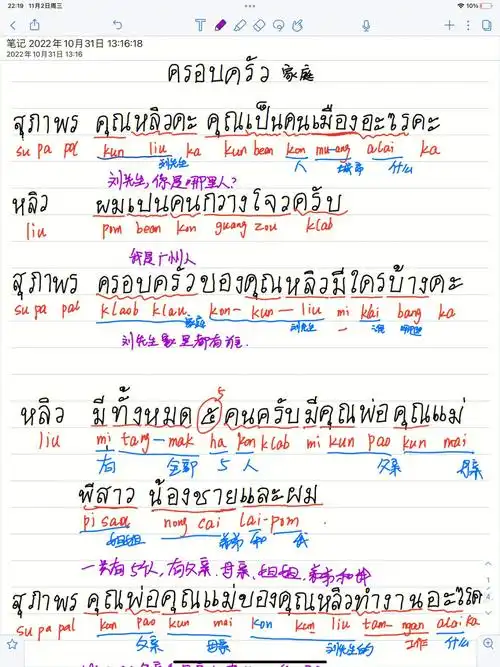 22:19 11月2日周三
10%
笔记 2022年10月31日 13:16:18
2022年10月31日 13:16
ครอบครัว 家庭
สุภาพร คุณหลิวคะ คุณเป็นคนเมืองอะไรคะ
su pa pol kun liu ka kun bean kon mu-ang alai ka
刘先生 人 城市 什么
刘先生,你是哪里人?
หลิว ผมเปนคนกวางโจวครับ
liu pom bean kon guang zou klab
我是广州人
สุภาพร ครอบครัวของคุณหลิวมีใครบ้างคะ
su pa pal klaob klau kon-kun-liu mi klai bang ka
家庭 刘先生 谁 哪里
刘先生家里都有谁.
5
หลิว มีทั้งหมด ๕ คนครับ มีคุณพ่อ คุณแม่
liu mi tang-mak ha kon klab mi kun pao kun mai
有 全部 5 人 父亲 母亲
พีสาว น้องชายและผม
pi sao nong cai lai-pom.
姐姐 弟弟 和 我
一共有5个人,有父亲、母亲、姐姐、弟弟和我
สุภาพร คุณพ่อคุณแม่ของคุณหลิวทำงานอะไร
su pa pal kon pao kun mai kon kun liu tam-ngan alai ka
父亲 母亲 刘先生的 工作 什么